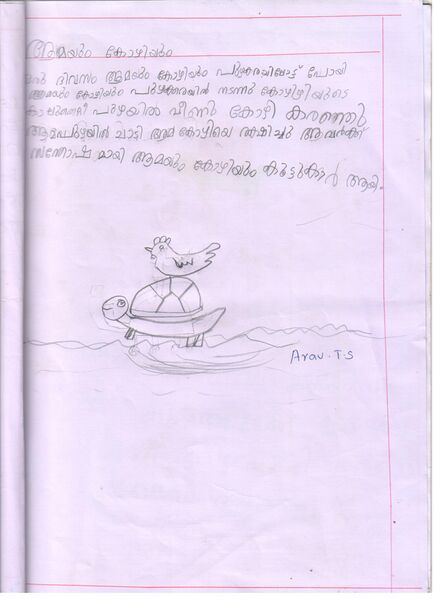 ആമയും കോഴിയും
ഒരു ദിവസം ആമയും കോഴിയും പുഴക്കരയിലോട്ട് പോയി
ആമയും കോഴിയും പുഴക്കരയിൽ നടന്നു കോഴിയുടെ
കാലുതെറ്റി പുഴയിൽ വീണു കോഴി കരഞ്ഞു
ആമ പുഴയിൽ ചാടി ആമ കോഴിയെ രക്ഷിച്ചു അവർക്ക്
സന്തോഷമായി ആമയും കോഴിയും കൂട്ടുകാർ ആയി.
Arav. T.S